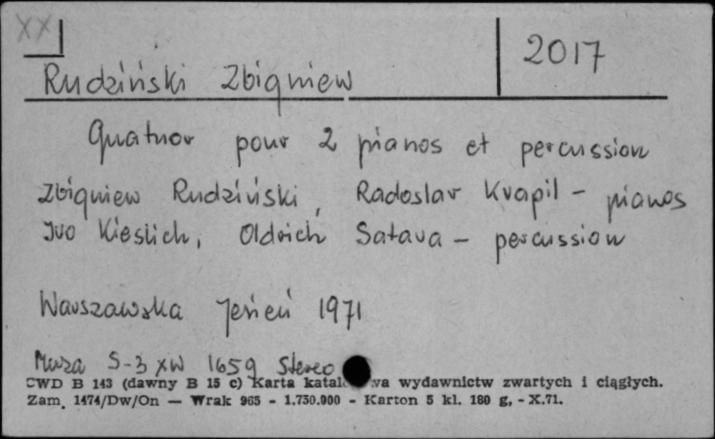 XX
2017
Rudziński Zbigniew
Quatuor pour 2 pianos et percussion
Zbigniew Rudziński, Radoslav Kvapil - pianos
Ivo Kieslich, Oldřich Satava - percussion
Warszawska Jesień 1971
Muza S-3 XW 1659 Stereo
CWD B 143 (dawny B 15 c) Karta katalogowa wydawnictw zwartych i ciągłych.
Zam. 1474/Dw/On — Wrak 965 - 1.730.000 - Karton 5 kl. 180 g, - X.71.